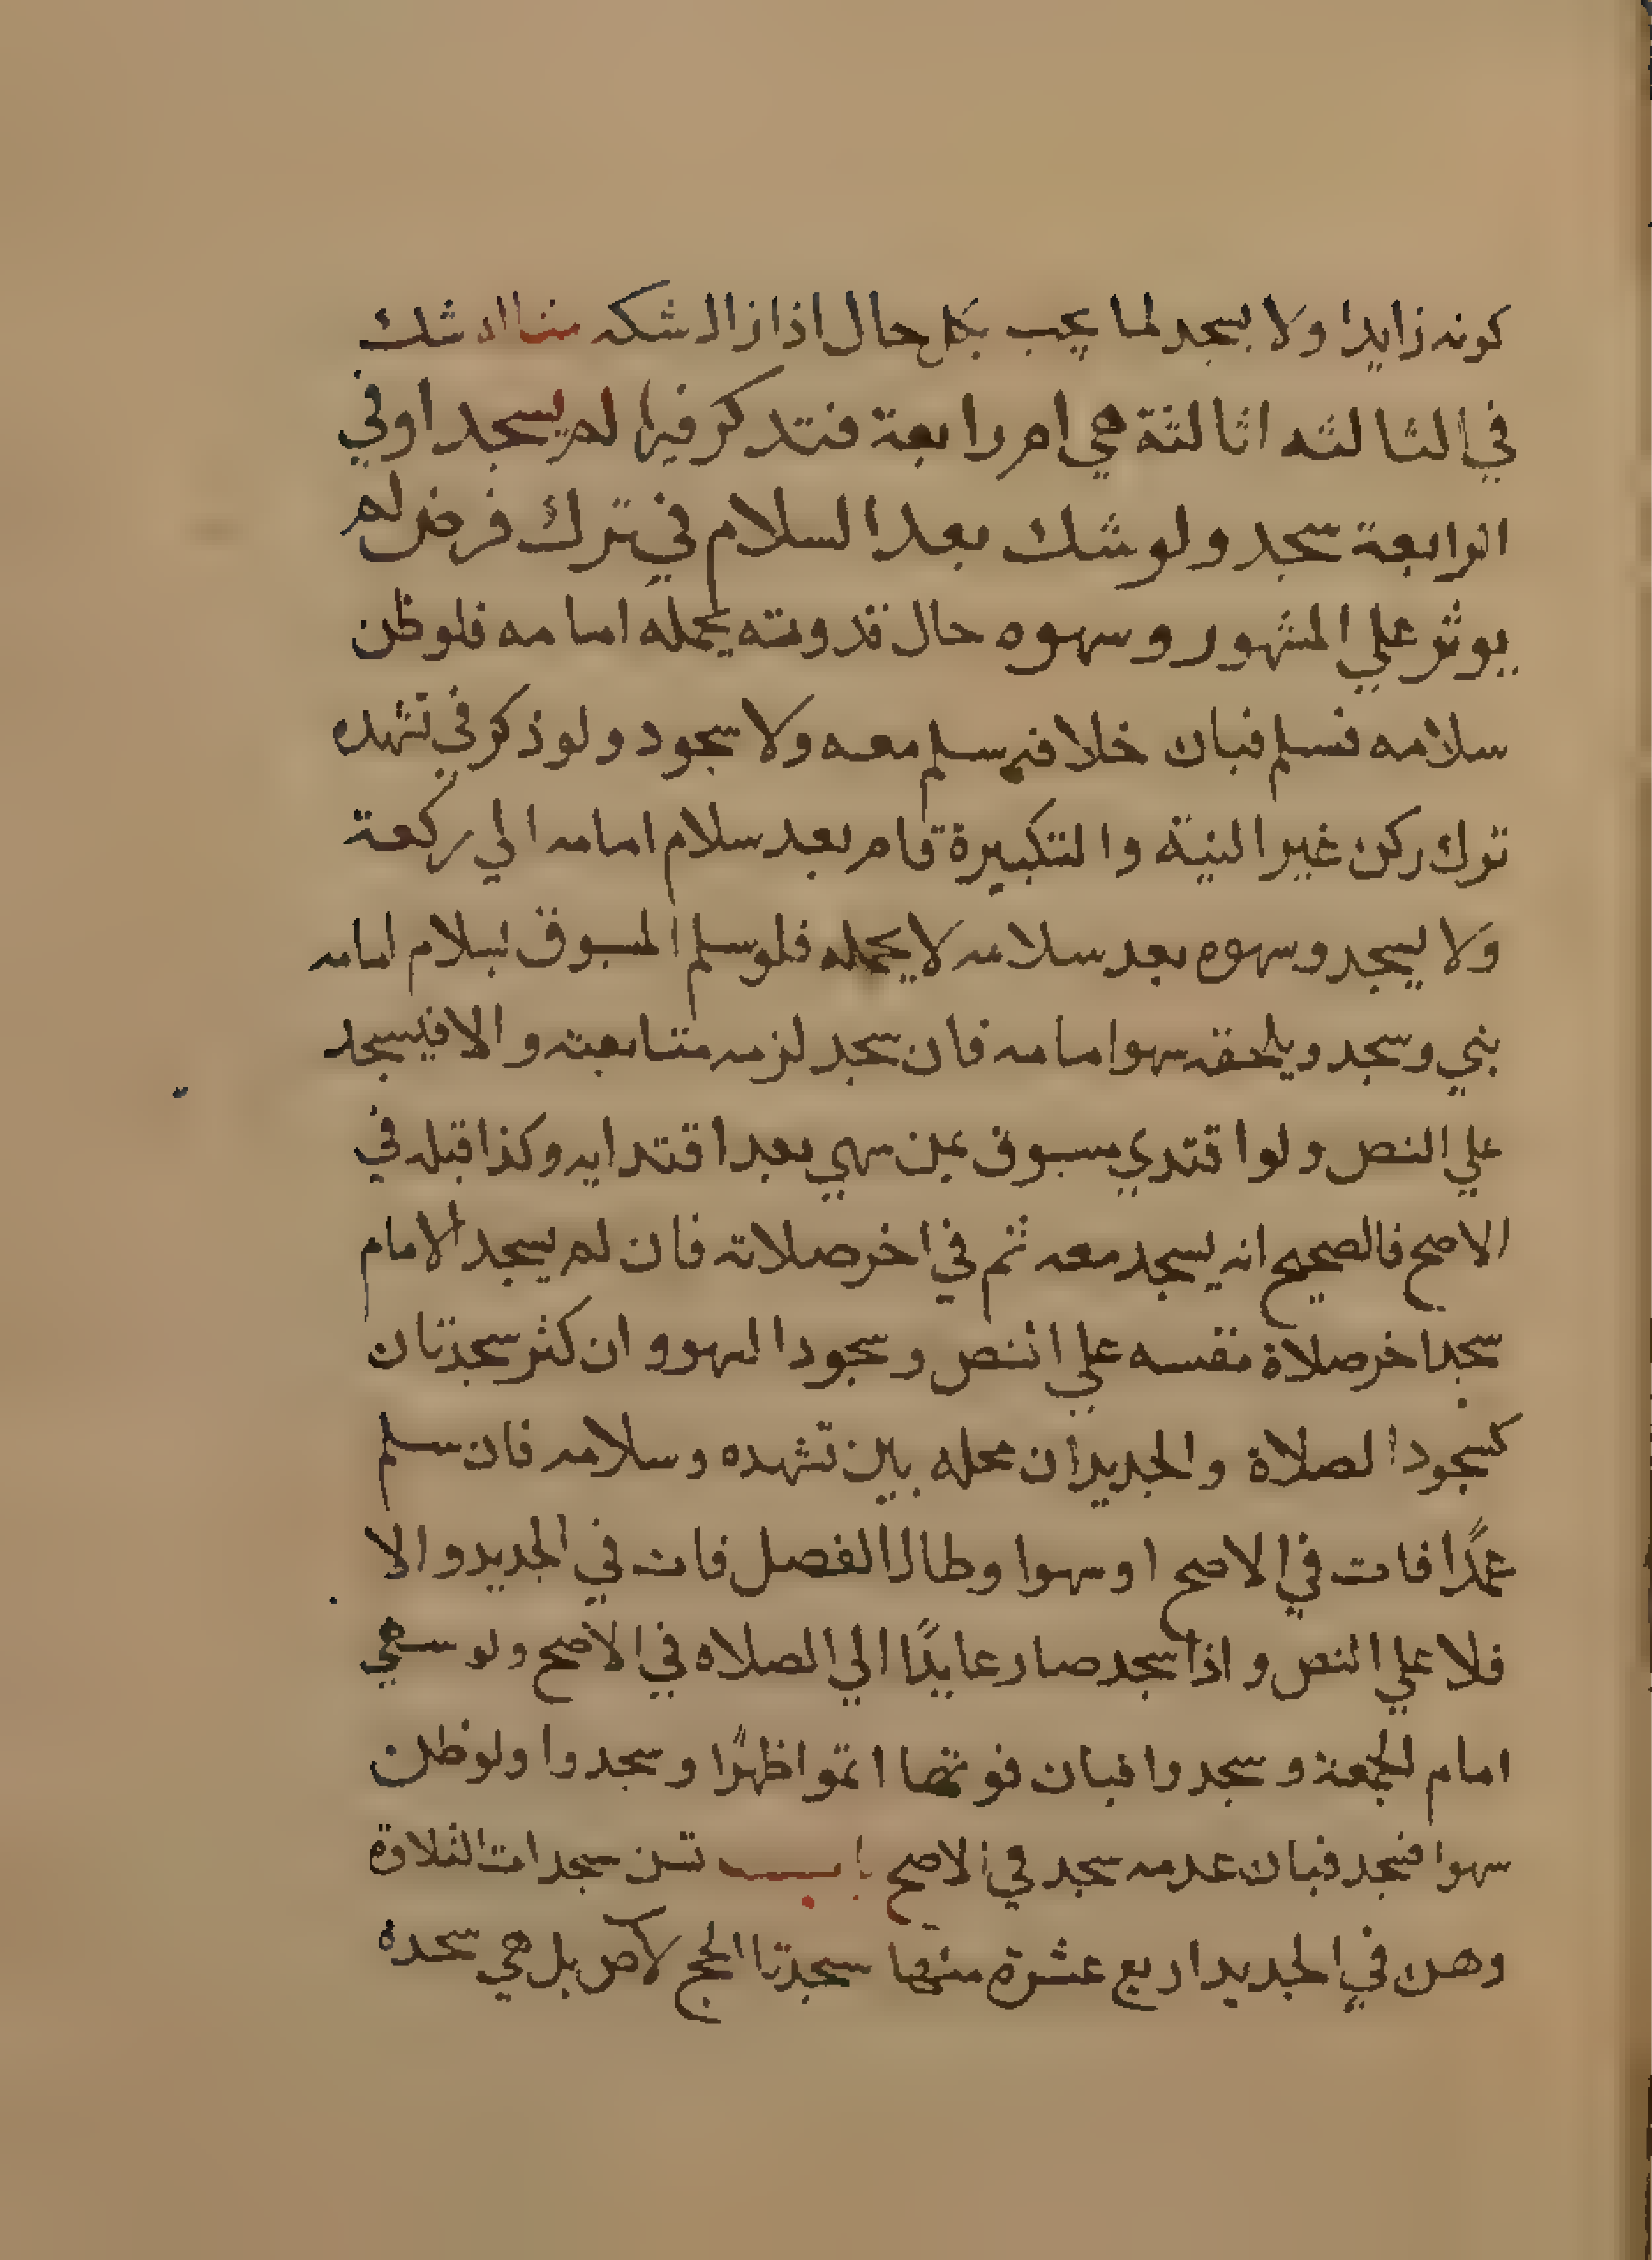 كونه زايدا ولا يسجد لما يجب بكل حال اذا زال شكه مثاله شك
في الثالثه اثالثة هي ام رابعة فتدكر فيها لم يسجد او في
الرابعة سجد ولو شك بعد السلام في ترك فرض لم
يوثر علي المشهور وسهوه حال قدوته يحمله امامه فلو ظن
سلامه فسلم فبان خلافه سلم معه ولا سجود ولو ذكر في تشهده
ترك ركن غير النية والتكبيرة قام بعد سلام امامه الي ركعة
ولا يسجد وسهوه بعد سلامه لا يحمله فلو سلم المسبوق بسلام امامه
بني وسجد ويلحقه سهوا مامه فان سجد لزمه متابعته والا فيسجد
علي النص ولو اقتدي مسبوق بمن سهي بعد اقتدايه وكذا قبله في
الاصح فالصحيح انه يسجد معه ثم في اخر صلاته فان لم يسجد الامام
سجد اخر صلاة نفسه علي النص وسجود السهو وان كثر سجدتان
كسجود الصلاة والجديد ان محله بين تشهده وسلامه فان سلم
عمدًا فات في الاصح او سهوا وطال الفصل فات في الجديد والا
فلا علي النص واذا سجد صار عايدًا الي الصلاه في الاصح ولو سهي
امام الجمعة وسجدوا فبان فوتها اتموا ظهرًا وسجدوا ولو ظن
سهوا فسجد فبان عدمه سجد في الاصح باب تسن سجدات التلاوة
وهن في الجديد اربع عشرة منها سجدتا الحج لاص بل هي سجدة